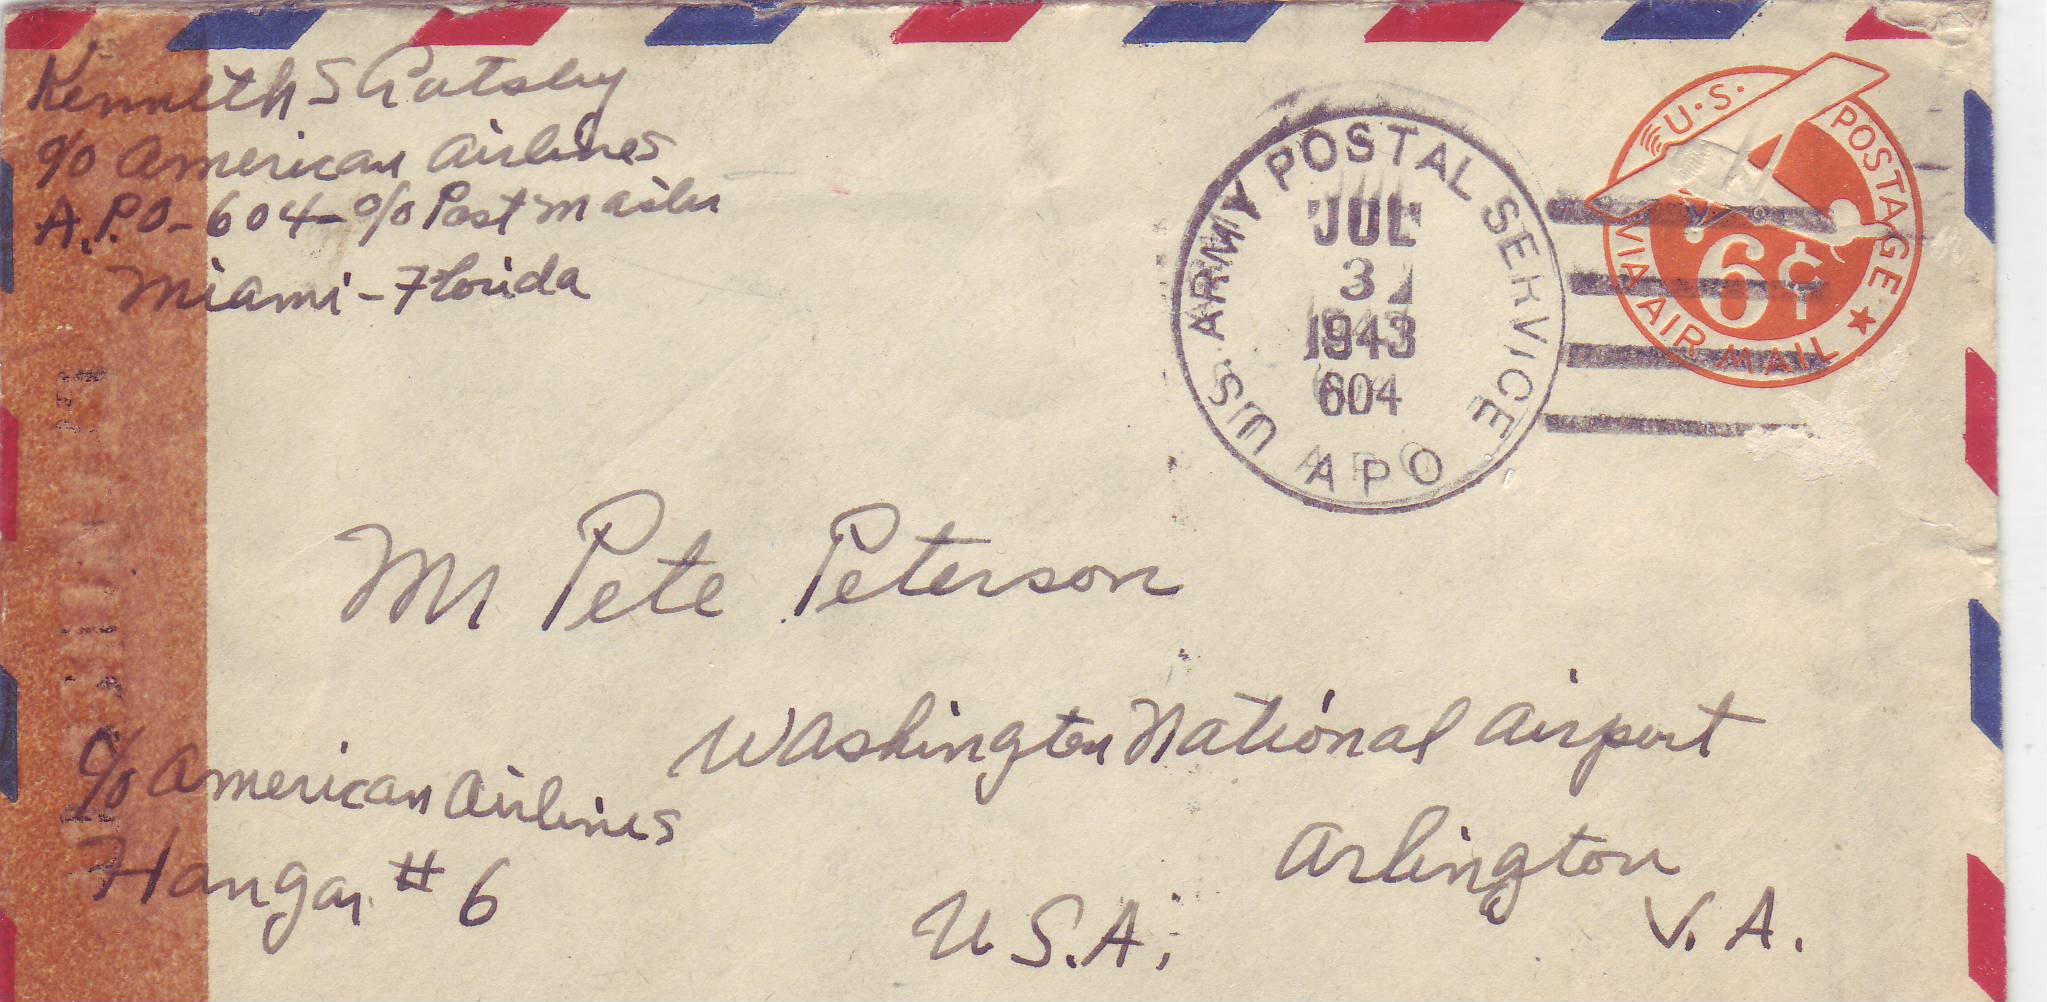 Kenneth S Gatsby
c/o American Airlines
A.P.O-604-c/o Post Master
Miami-Florida
U.S. ARMY POSTAL SERVICE
JUL
3
1943
604
APO
U.S. POSTAGE
6¢
VIA AIR MAIL
Mr Pete Peterson
Washington National Airport
c/o American Airlines
Arlington
Hangar # 6
V.A.
U.S.A.